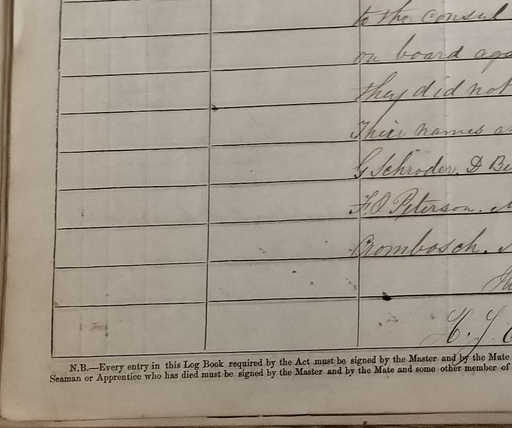 to the consul
on board aga
they did not
Their names a
G Schroder, D Be
F. O Peterson.
Crombosch.
H. J.
N.B.—Every entry in this Log Book required by the Act must be signed by the Master and by the Mate
Seaman or Apprentice who has died must be signed by the Master and by the Mate and some other member of